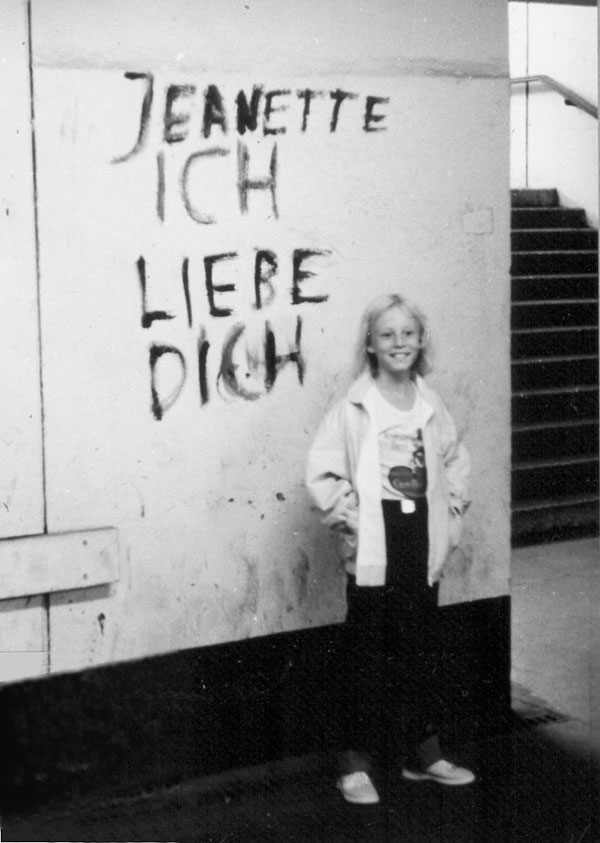 JEANETTE
ICH
LIEBE
DICH